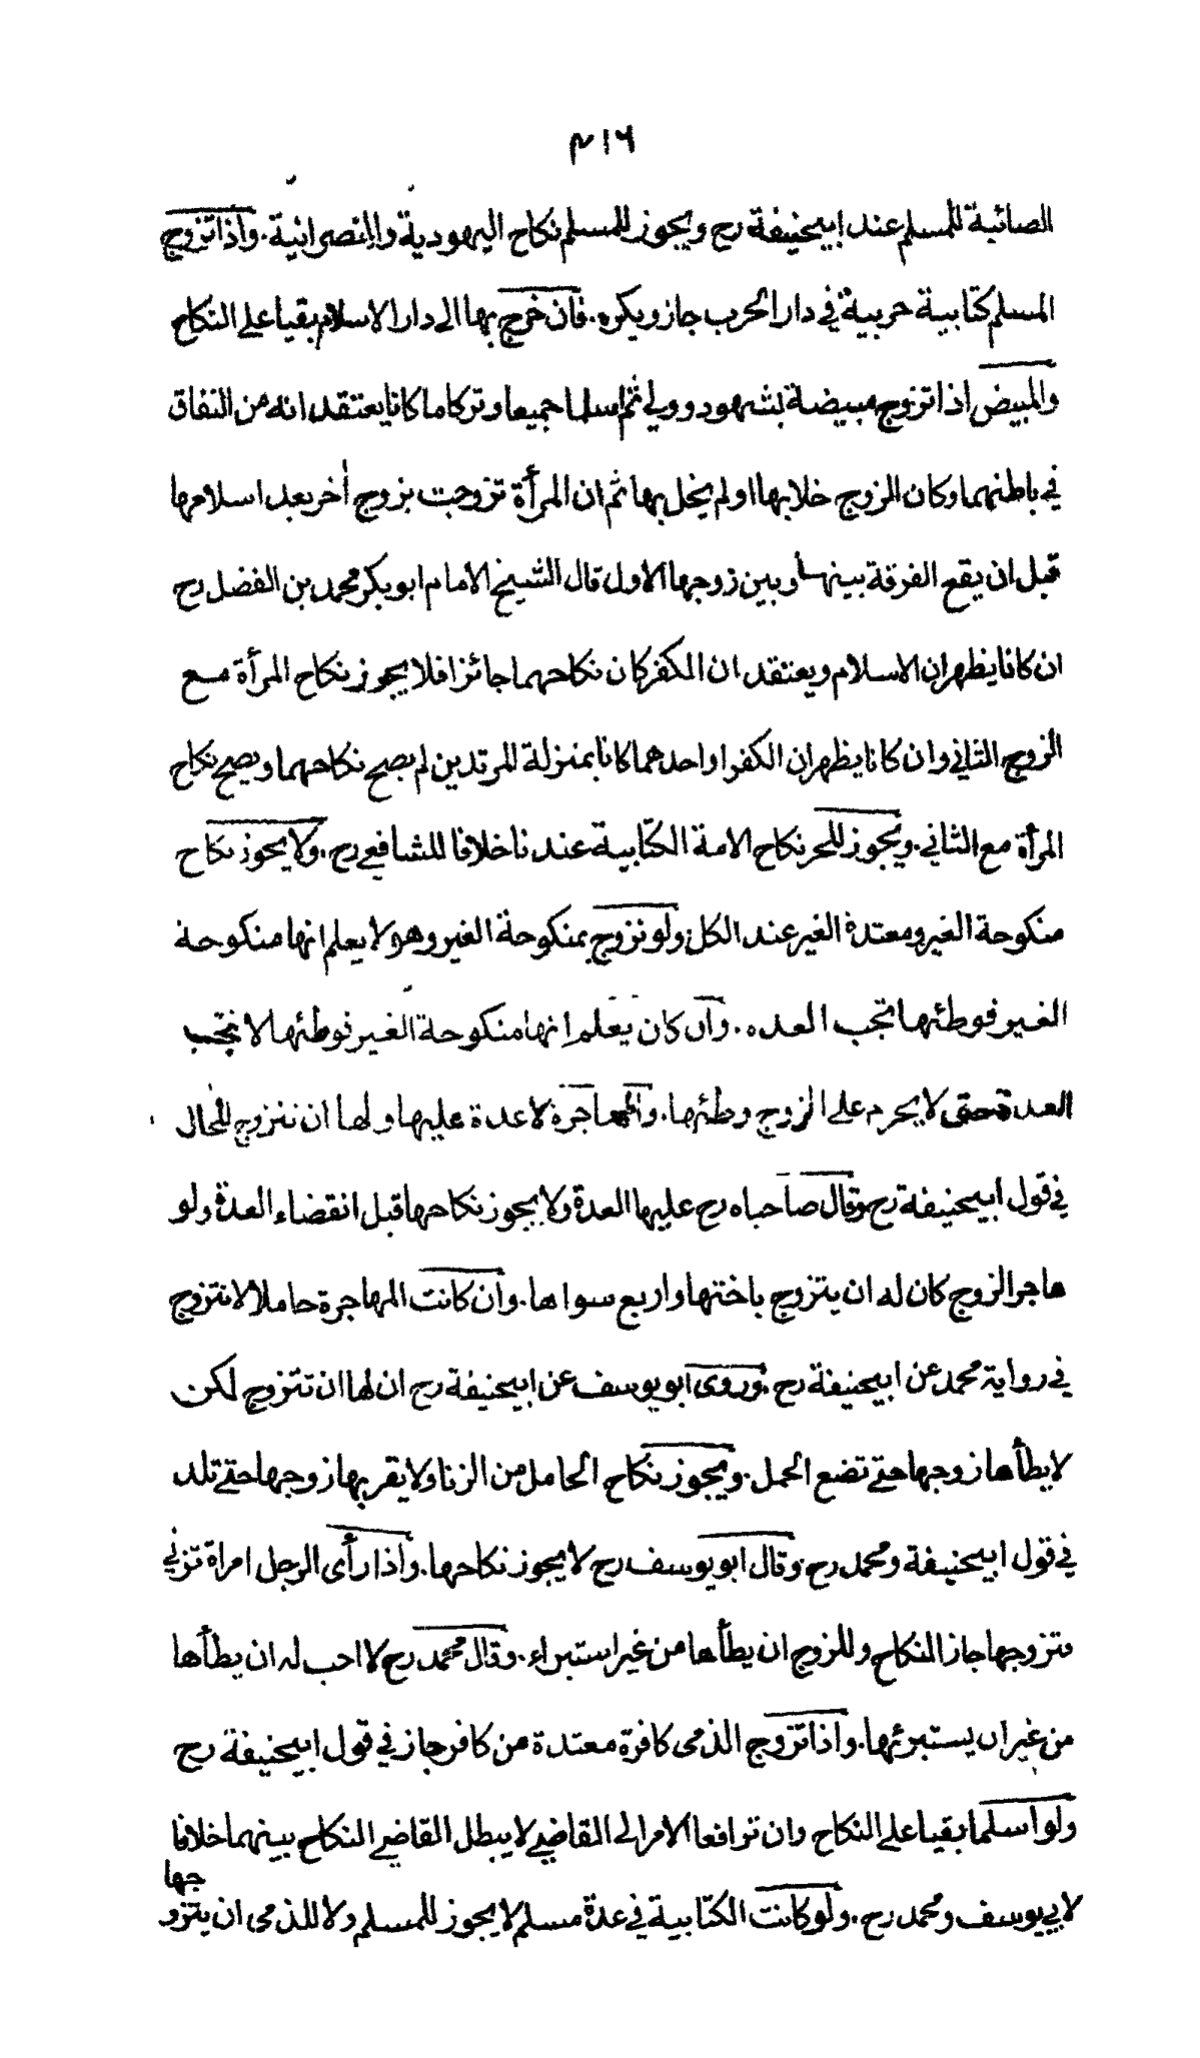 ٤١٦
الصائبة للمسلم عند ابيحنيفة رح ويجوز للمسلم نكاح اليهودية والنصرانية. واذا تزوج
المسلم كتابية حربية في دار الحرب جاز ويكره. فان خرج بها الى دار الاسلام بقيا على النكاح
والمبيض اذا تزوج مبيضة بشهود وولي ثم اسلما جميعا وتركا ما كانا يعتقدانه من النفاق
في باطنهما وكان الزوج خلا بها او لم يخل بها ثم ان المرأة تزوجت بزوج أخر بعد اسلامها
قبل ان يقع الفرقة بينها وبين زوجها الاول قال الشيخ الامام ابو بكر محمد بن الفضل رح
ان كانا يظهران الاسلام ويعتقدان الكفر كان نكاحهما جائزا فلا يجوز نكاح المرأة مع
الزوج الثاني وان كانا يظهران الكفر او احدهما كانا بمنزلة المرتدين لم يصح نكاحهما ويصح نكاح
المرأة مع الثاني. ويجوز للحر نكاح الامة الكتابية عندنا خلافا للشافعي رح. ولا يجوز نكاح
منكوحة الغير ومعتدة الغير عند الكل ولو تزوج بمنكوحة الغير وهو لا يعلم انها منكوحة
الغير فوطئها تجب العده. وان كان يعلم انها منكوحة الغير فوطئها لا تجب
العدة حتى لا يحرم على الزوج وطئها. والمهاجرة لا عدة عليها ولها ان تتزوج للحال
في قول ابيحنيفة رح وقال صاحباه رح عليها العدة ولا يجوز نكاحها قبل انقضاء العدة ولو
هاجر الزوج كان له ان يتزوج باختها واربع سواها. وان كانت المهاجرة حاملا لا تتزوج
في رواية محمد عن ابيحنيفة رح. وروى ابو يوسف عن ابيحنيفة رح ان لها ان تتزوج لكن
لا يطأها زوجها حتى تضع الحمل. ويجوز نكاح الحامل من الزنا ولا يقربها زوجها حتى تلد
في قول ابيحنيفة ومحمد رح. وقال ابو يوسف رح لا يجوز نكاحها. واذا رأى الرجل امراة تزني
فتزوجها جاز النكاح وللزوج ان يطأها من غير استبراء. وقال محمد رح لا احب له ان يطأها
من غير ان يستبرئها. واذا تزوج الذمى كافرة معتدة من كافر جاز في قول ابيحنيفة رح
ولو اسلما بقيا على النكاح وان ترافعا الامر الى القاضي لا يبطل القاضي النكاح بينهما خلافا
لابي يوسف ومحمد رح. ولو كانت الكتابية في عدة مسلم لا يجوز للمسلم ولا للذمى ان يتزوجها